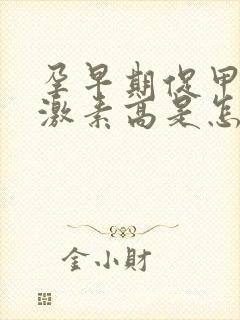 孕早期促甲
激素高是怎
金小财